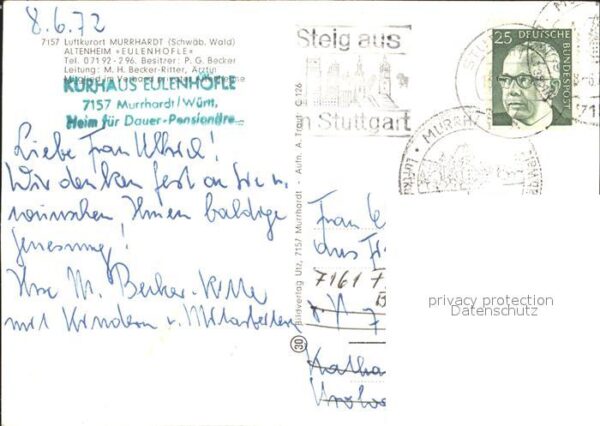 8.6.72
7157 Luftkurort MURRHARDT (Schwäb. Wald)
ALTENHEIM »EULENHÖFLE«
Tel. 07192-296. Besitzer: P. G. Becker
Leitung: M. H. Becker-Ritter, Ärztin
Mitglied im
KURHAUS EULENHÖFLE
7157 Murrhardt/Württ.
Heim für Dauer-Pensionäre
Liebe Frau Ullrich!
Wir denken fest an Sie u.
wünschen Ihnen baldige
Genesung!
Ihre M. Becker-Ritter
mit Kindern u. Mitarbeitern
30 Bildverlag Utz, 7157 Murrhardt - Aufn. A. Traut O 126
Steig aus
in Stuttgart
25 DEUTSCHE BUNDESPOST
MURRH
LUFTKU
Frau
aus
7161
7
Katha
privacy protection
Datenschutz